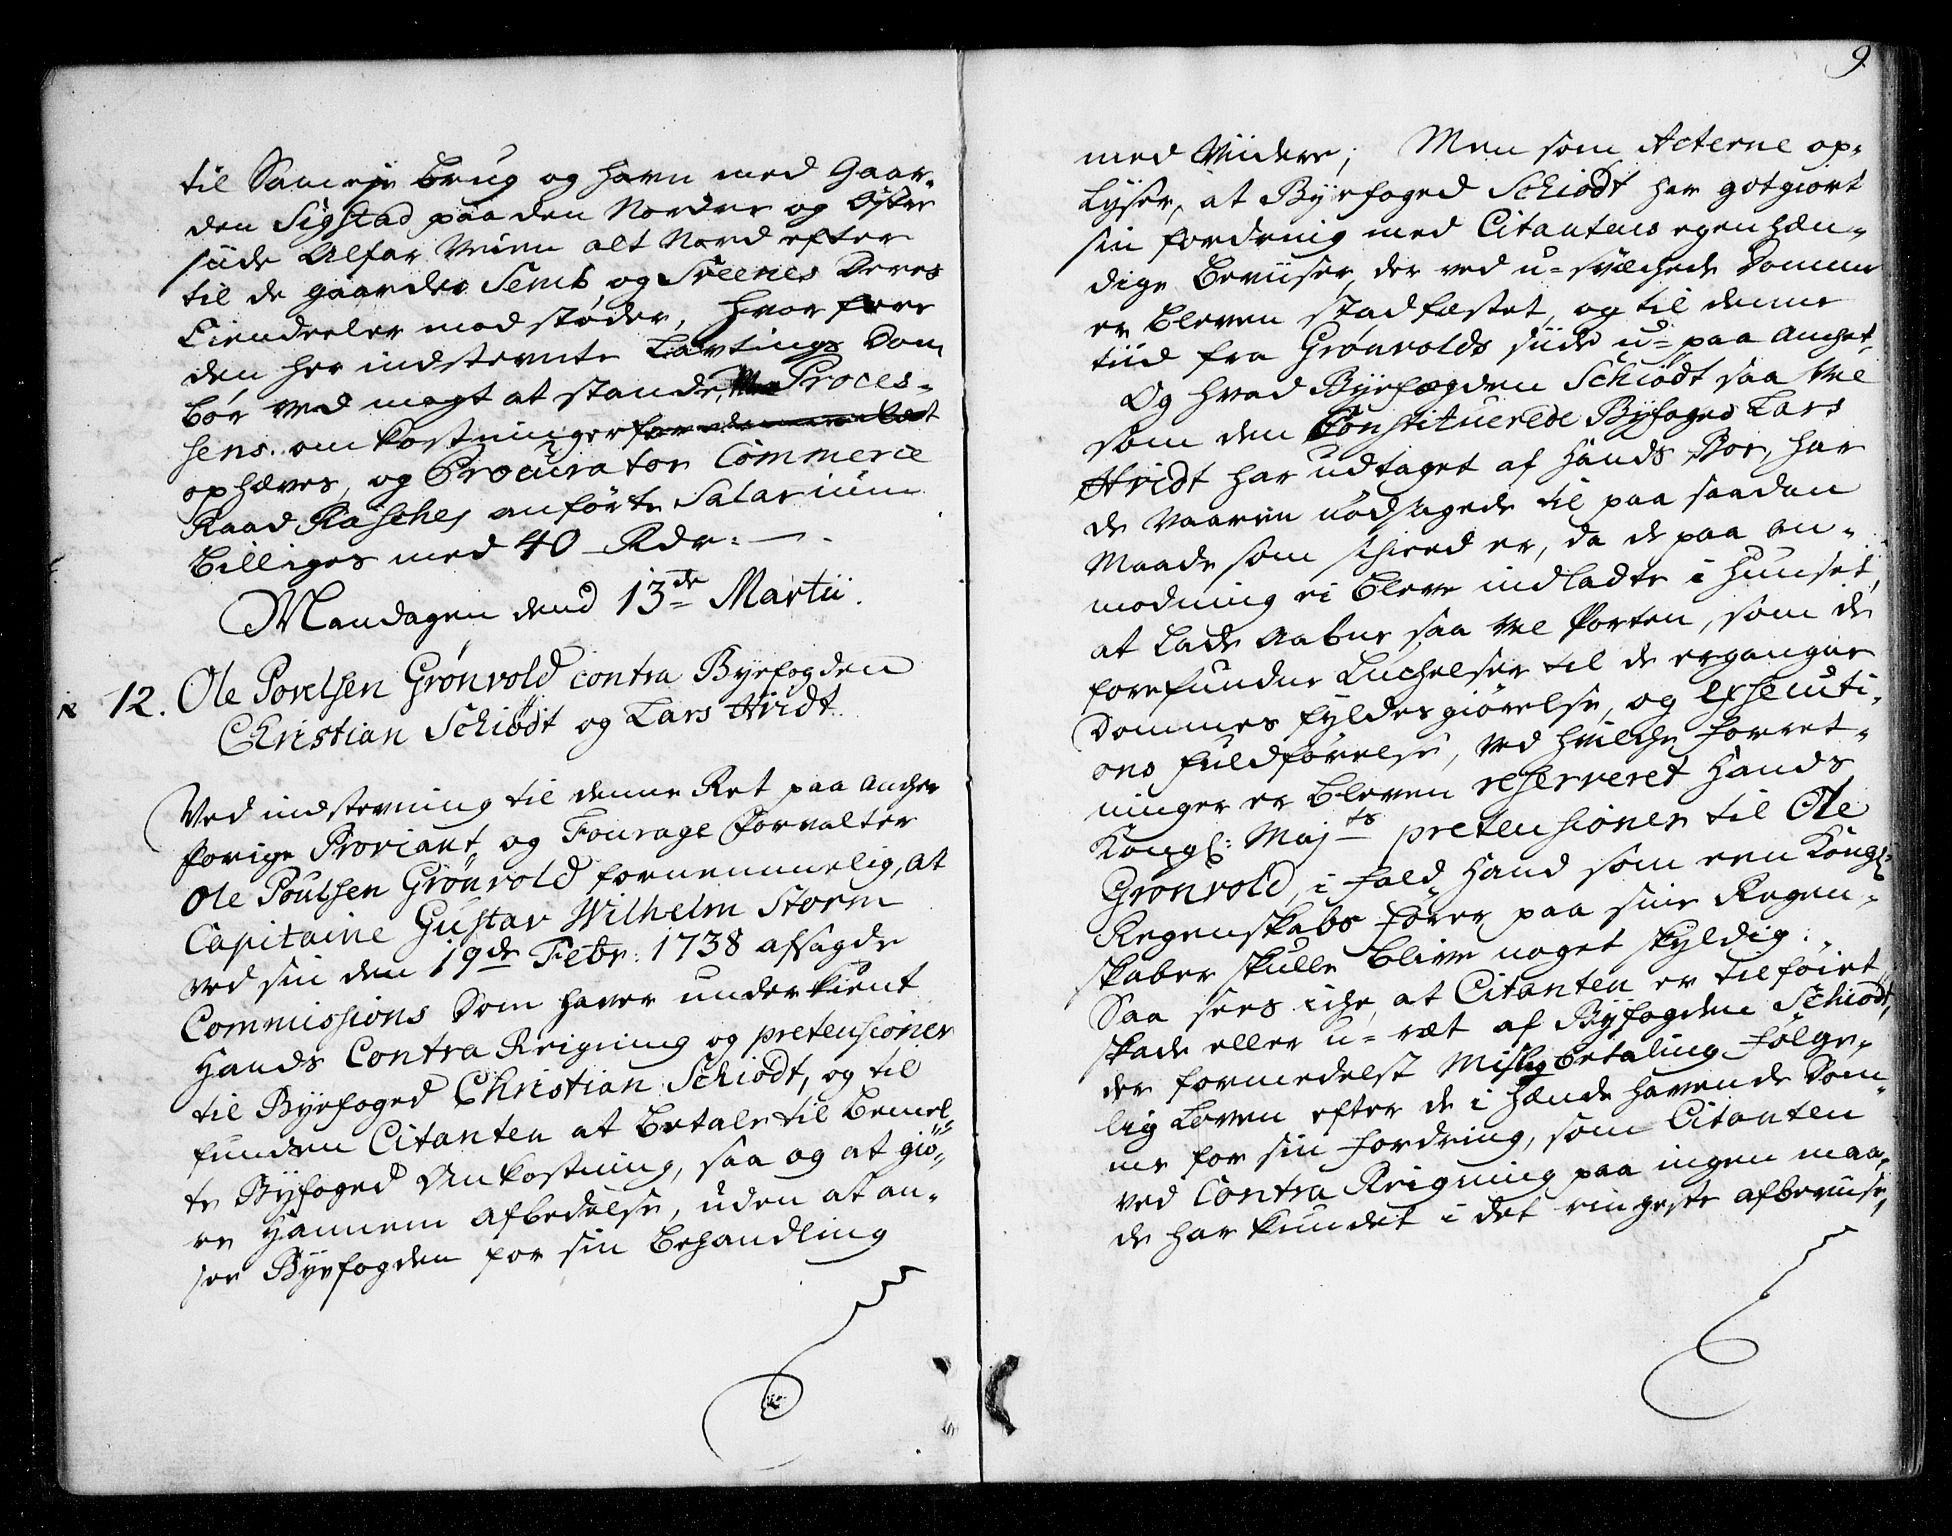 til Sameje brug og havn med Gaar-
den Sigstad paa den Nordre og Østre
siide Alfar Veien alt Nord efter
til de gaarder Semb og Sreenes Deres
Eiendeeler modstøder, hvor fore
den her indstevnte Lavtings Dom,
bør ved magt at stande, Proces-
sens omkostninger
ophæves, og Procurator Commerce
Raad Rasches anførte Salarium
billiges med 40 Rdr: —
Mandagen dend 13de Martii.
12. Ole Povelsen Grönvold contra Byefogden
Christian Schiödt og Lars Hvidt.
Ved indstevning til denne Ret paa ancher
forige Proviant og Fourage forvalter
Ole Poulsen Grönvold fornemmelig, at
Capitaine Gustav Wilhelm Storm
ved sin den 19de Febr: 1738 afsagde
Commissions Dom haver underkient
Hands Contra Reigning og pretensioner
til Byefoged Christian Schiödt, og til
funden Citanten at betale til bemel-
te Byefoged Omkostning, saa og at giö-
re Hannem afbedelse, uden at an-
see Byefogden for sin behandling
9.
med Viidere; Men som Acterne op-
lyser, at Byefoged Schiödt har gotgiort
sin fordring med Citantens egenhæn-
dige beviiser, der ved u-svæchede Domme
er bleven stadfæstet, og til denne
tiid fra Grönvolds siide u-paa anchet,
Og hvad Byefogden Schiödt saa vel
som den Constituerede Byfoged Lars
Hvidt har udtaget af Hands Boe, har
de vaaren nödsagede til paa saadan
Maade som skeed er, da de paa an-
modning ei bleve indladte i Huuset,
at lade aabne, saa vel Porten, som de
forefundne Luchelser til de ergangne
Dommes fyldesgiörelse, og Executi-
ons fuldförelse, ved hvilche forret-
ninger er bleven reserveret Hands
Kongl: Majts pretensioner til Ole
Grönvold, i fald Hand som een Kongl:
Regenskabs fører, paa sine Regen-
skaber skulle blive noget skyldig;
Saa sees iche, at Citanten er tilföiet
skade eller u-ræt af Byfogden Schiödt,
der formedelst Mislig betaling følge-
lig Loven efter de i hænde havende Dom-
me for sin fordring, som Citanten
ved Contra Reigning paa ingen maa-
de har kundet i det ringeste afbeviise,